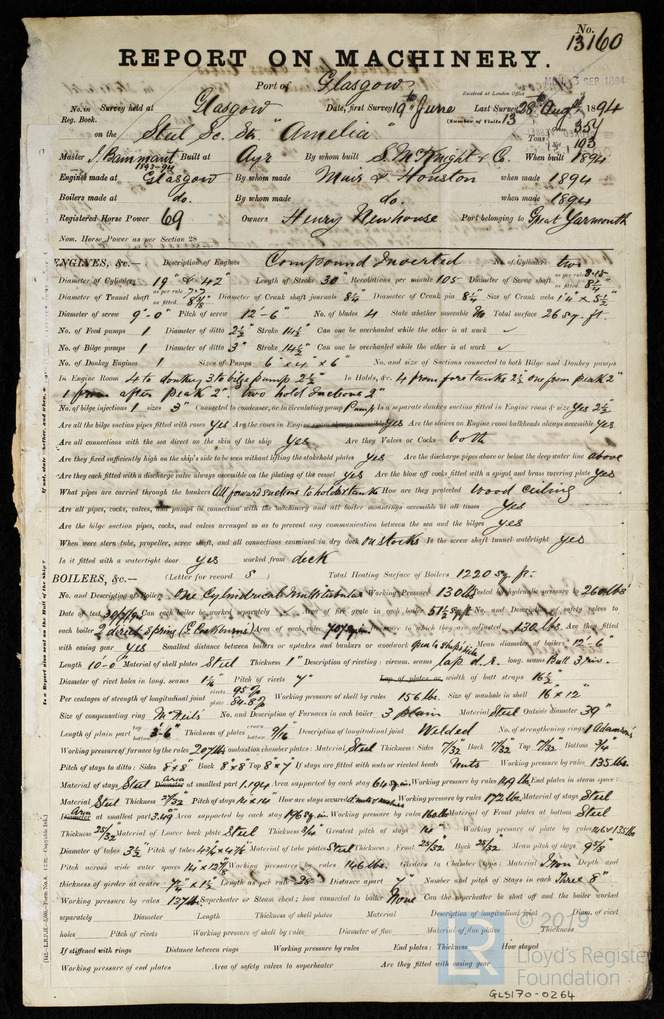 No. 13160
REPORT ON MACHINERY.
Port of Glasgow
Received at London Office 3 SEP 1894
No. in Survey held at Glasgow Date, first Survey 19th June Last Survey 28th Augt 1894
Reg. Book. (Number of Visits 13
on the Steel Sc. Str. "Amelia" Tons 357 103
Master J. Built at Ayr By whom built S. McKnight & Co. When built 1894
Engines made at Glasgow By whom made Muir & Houston when made 1894
Boilers made at do. By whom made do. when made 1894
Registered Horse Power 69 Owners Henry Newhouse Port belonging to Great Yarmouth
Nom. Horse Power as per Section 28
ENGINES, &c.— Description of Engines Compound Inverted No. of Cylinders two
Diameter of Cylinders 19" & 42" Length of Stroke 30" Revolutions per minute 105 Diameter of Screw shaft as per rule 8.15 as fitted 8½"
Diameter of Tunnel shaft as per rule 7.7 as fitted Diameter of Crank shaft journals 8¼ Diameter of Crank pin 8¼" Size of Crank webs
Diameter of screw 9'-0" Pitch of screw 12'-6" No. of blades 4 State whether moveable No Total surface 26 sq. ft.
No. of Feed pumps 1 Diameter of ditto 2½" Stroke 14½" Can one be overhauled while the other is at work ✓
No. of Bilge pumps 1 Diameter of ditto 3" Stroke 14½" Can one be overhauled while the other is at work ✓
No. of Donkey Engines 1 Sizes of Pumps 6" x 4" x 6" No. and size of Suctions connected to both Bilge and Donkey pumps
In Engine Room 4 to donkey 3 to bilge pump 2½" In Holds, &c. 4 from fore tanks 2½ one from peak 2"
1 from after peak 2". Two hold suctions 2"
No. of bilge injections 1 sizes 3" Connected to condenser, or to circulating pump Pump Is a separate donkey suction fitted in Engine room & size Yes 2½"
Are all the bilge suction pipes fitted with roses Yes Are the roses in Engine room always accessible Yes Are the sluices on Engine room bulkheads always accessible Yes
Are all connections with the sea direct on the skin of the ship Yes Are they Valves or Cocks both
Are they fixed sufficiently high on the ship's side to be seen without lifting the stokehold plates Yes Are the discharge pipes above or below the deep water line above
Are they each fitted with a discharge valve always accessible on the plating of the vessel Yes Are the blow off cocks fitted with a spigot and brass covering plate Yes
What pipes are carried through the bunkers All forward suctions to holds & tanks How are they protected wood ceiling
Are all pipes, cocks, valves, and pumps in connection with the machinery and all boiler mountings accessible at all times Yes
Are the bilge suction pipes, cocks, and valves arranged so as to prevent any communication between the sea and the bilges yes
When were stern tube, propeller, screw shaft, and all connections examined in dry dock on stocks Is the screw shaft tunnel watertight yes
Is it fitted with a watertight door yes worked from deck
BOILERS, &c.— (Letter for record S) Total Heating Surface of Boilers 1220 sq. ft.
No. and Description of Boilers One Cylindrical Multitubular Working Pressure 130 lbs Tested by hydraulic pressure to 260 lbs
Date of test Can each boiler be worked separately Area of fire grate in each boiler 51½ sq. ft No. and Description of safety valves to
each boiler 2 direct spring Area of each valve Pressure to which they are adjusted 130 lbs. Are they fitted
with easing gear Yes Smallest distance between boilers or uptakes and bunkers or woodwork Mean diameter of boilers 12'-6"
Length 10'-0" Material of shell plates Steel Thickness 1" Description of riveting: circum. seams Lap d.r. long. seams Butt 3 riv.
Diameter of rivet holes in long. seams Pitch of rivets 7" Lap of plates or width of butt straps 16½"
Per centages of strength of longitudinal joint rivets 95% plate 84.8% Working pressure of shell by rules 156 lbs. Size of manhole in shell 16" x 12"
Size of compensating ring McNeil's No. and Description of Furnaces in each boiler 3 plain Material Steel Outside diameter 39"
Length of plain part top bottom 3'-6" Thickness of plates crown bottom 9/16 Description of longitudinal joint Welded No. of strengthening rings 1 Adamson's
Working pressure of furnace by the rules 207 lbs Combustion chamber plates: Material Steel Thickness: Sides 17/32 Back 17/32 Top 17/32 Bottom ¾"
Pitch of stays to ditto: Sides 8" x 8" Back 8" x 8" Top 8" x 7" If stays are fitted with nuts or riveted heads Nuts Working pressure by rules 135 lbs.
Material of stays Steel Area Diameter at smallest part 1.194 Area supported by each stay 64 sq. in. Working pressure by rules 149 lb End plates in steam space:
Material Steel Thickness Pitch of stays 14 x 14 How are stays secured Working pressure by rules 172 lbs. Material of stays Steel
Area Diameter at smallest part Area supported by each stay 196 sq. in. Working pressure by rules Material of Front plates at bottom Steel
Thickness 25/32 Material of Lower back plate Steel Thickness Greatest pitch of stays 14 Working pressure of plate by rules
Diameter of tubes 3½" Pitch of tubes Material of tube plates Steel Thickness: Front 25/32 Back 25/32 Mean pitch of stays
Pitch across wide water spaces Working pressures by rules 146 lbs. Girders to Chamber tops: Material Iron Depth and
thickness of girder at centre Length as per rule Distance apart 7" Number and pitch of Stays in each Three 8"
Working pressure by rules 137 lbs. Superheater or Steam chest; how connected to boiler None Can the superheater be shut off and the boiler worked
separately Diameter Length Thickness of shell plates Material Description of longitudinal joint Diam. of rivet
holes Pitch of rivets Working pressure of shell by rules Diameter of flue Material of flue plates Thickness
If stiffened with rings Distance between rings Working pressure by rules End plates: Thickness How stayed
Working pressure of end plates Area of safety valves to superheater Are they fitted with easing gear
© 2019
Lloyd's Register
Foundation
GLS170-0264